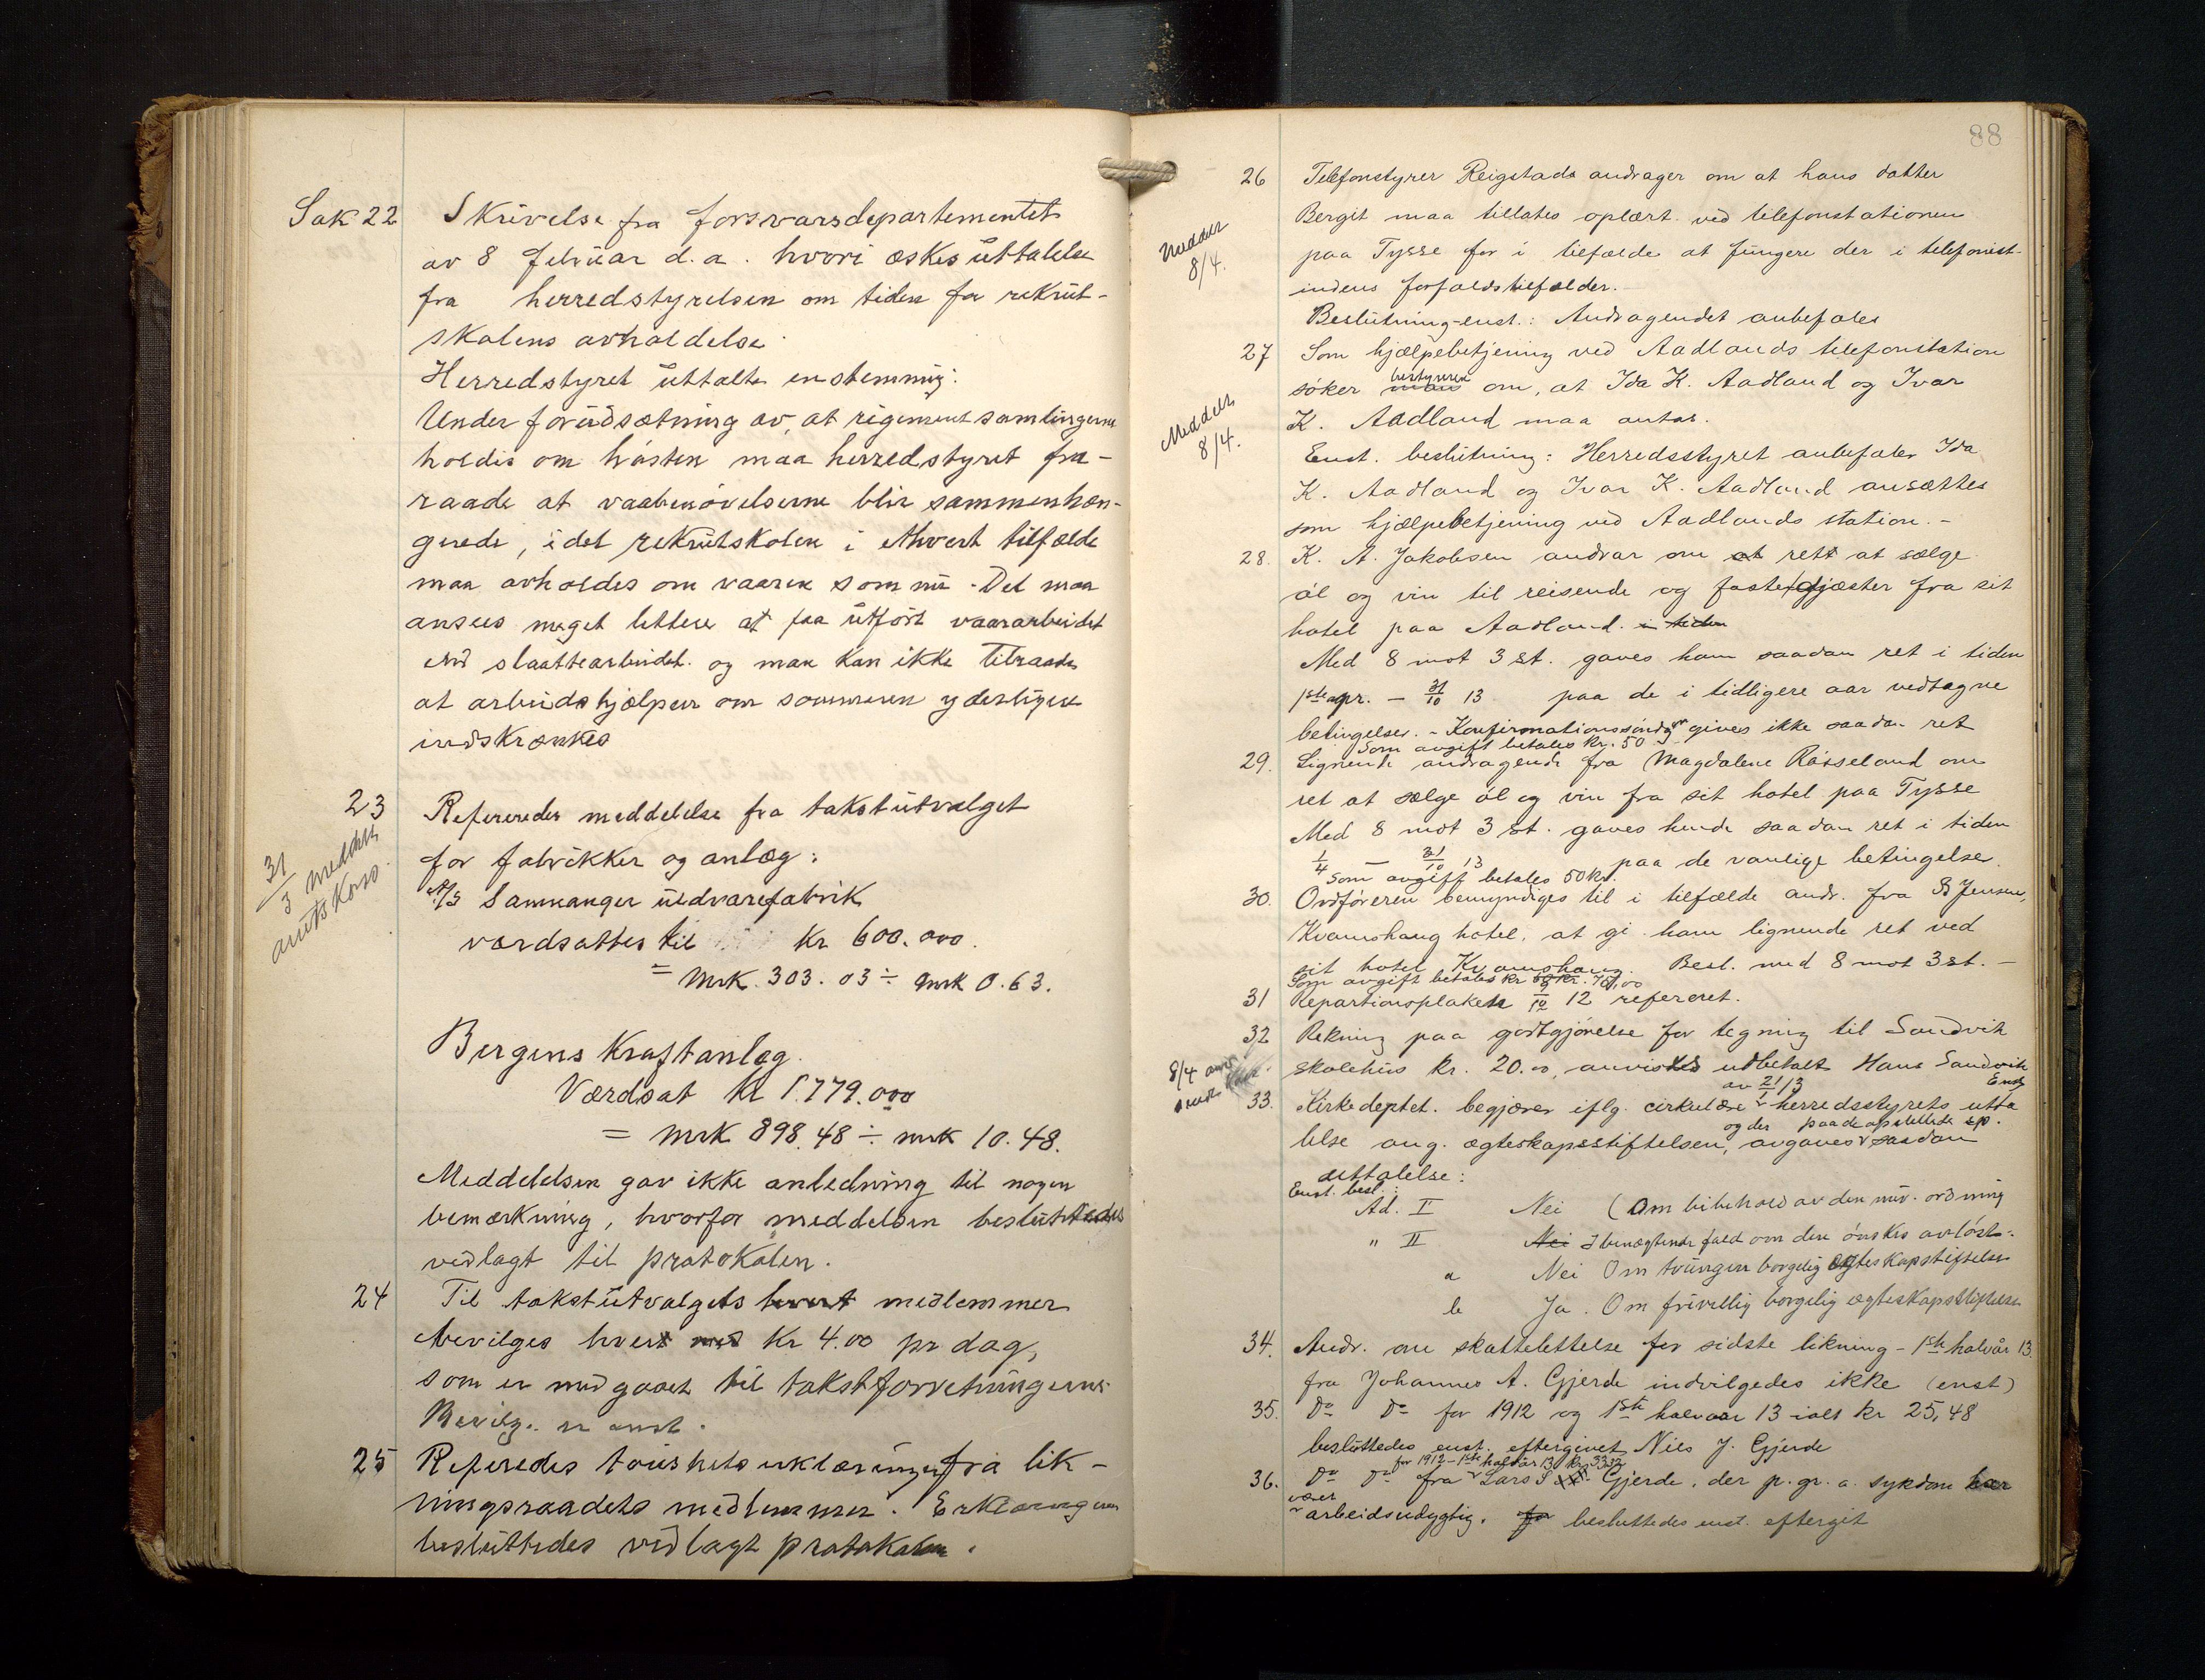 Sak 22 Skrivelse fra forsvarsdepartementet
av 8 februar d.a. hvori æskes uttalelse
fra herredstyrelsen om tiden for rekrut-
skolens avholdelse.
Herredstyret uttalte enstemmig:
Under forudsætning av, at regimentsamlingerne
holdes om høsten maa herredstyret fra-
raade at vaabenøvelserne blir sammenhæn-
gende, idet rekrutskolen i ethvert tilfælde
maa avholdes om vaaren som nu. Det maa
ansees meget lettere at faa utført vaararbeidet
end slaattearbeidet og man kan ikke tilraade
at arbeidshjælpen om sommeren yderligere
indskrænkes
23 Refereredes meddelelse fra takstutvalget
31/3 meddelt
amtskons.
for fabrikker og anlæg:
A/S Samnanger uldvarefabrik
værdsattes til kr 600.000.
= Mrk. 303.03 ÷ mrk 0.63.
Bergens Kraftanlæg.
Værdsat kr 1.779.000
= mrk 898.48 ÷ mrk 10.48.
Meddelelsen gav ikke anledning til nogen
bemærkning, hvorfor meddelsen besluttedes
vedlagt til protokolen.
24 Til takstutvalgets hvert medlemmer
bevilges hvert med kr 4.00 pr dag,
som er medgaaet til takstforretningerne
Bevilg. er enst.
25 Referedes troskapserklæringer fra lik-
ningsraadets medlemmer. Erklæringerne
besluttedes vedlagt protokolen.
88
26 Telefonstyrer Reigstads andrager om at hans datter
Bergit maa tillates oplært ved telefonstationen
Meddelt
8/4.
paa Tysse for i tilfælde at fungere der i telefonist-
indens forfaldstilfælder.-
Beslutning-enst.: Andragendet anbefales
27 Som hjælpebetjening ved Aadlands telefonstation
søker bestyreren om, at Ida K. Aadland og Ivar
Meddelt
8/4.
K. Aadland maa antas.
Enst. beslutning: Herredsstyret anbefaler Ida
K. Aadland og Ivar K. Aadland ansættes
som hjælpebetjening ved Aadlands station.-
28. K. A. Jakobsen andrar om at rett at sælge
øl og vin til reisende og faste gjæster fra sit
hotel paa Aadland. i tiden
Med 8 mot 3 st. gaves ham saadan ret i tiden
1ste apr. - 31/10 13 paa de i tidligere aar vedtagne
betingelser. - Konfirmationssøndagen gives ikke saadan ret
Som avgift betales kr. 50
29. Lignende andragende fra Magdalene Røsseland om
ret at sælge øl og vin fra sit hotel paa Tysse
Med 8 mot 3 st. gaves hende saadan ret i tiden
1/4 - 31/10 13 paa de vanlige betingelser.
Som avgift betales 50 kr.
30. Ordføreren bemyndiges til i tilfælde andr. fra B Jensen,
Kvamshaug hotel, at gi ham lignende ret ved
sit hotel Kvamshaug. Besl. med 8 mot 3 st.-
Som avgift betales kr 50 kr. 70,00
31 Repartionsplakat 12 referert.
32 Rekning paa godtgjørelse for tegning til Sandvik
8/4 anv.
skolehus kr. 20.00, anvistes utbetalt Hans Sandvik
Enst
33. Kirkedeptet. begjærer iflg. cirkulære av 21/1 13 herredsstyrets utta
lelse ang. ægteskapsstiftelsen, og der paa de opstillede sp. avgaves saadan
uttalelse:
Enst. besl.:
Ad. I Nei (Om bibehold av den nuv. ordning
" II Nei I benægtende fald om den ønskes avløst:
a Nei Om tvungen borgelig ægteskapstiftelse
b Ja. Om frivillig borgelig ægteskapsstiftelse
34. Andr. om skattelettelse for sidste likning - 1ste halvår 13.
fra Johannes A. Gjerde indvilgedes ikke (enst)
35. Do Do for 1912 og 1ste halvaar 13 ialt kr 25,48
besluttedes enst. eftergivet Nils J. Gjerde
for 1912 - 1ste halvår 13 kr 33,32
36. Do Do fra Lars S. Gjerde, der p. gr. a. sykdom har
været arbeidsudygtig. for besluttedes enst. eftergit